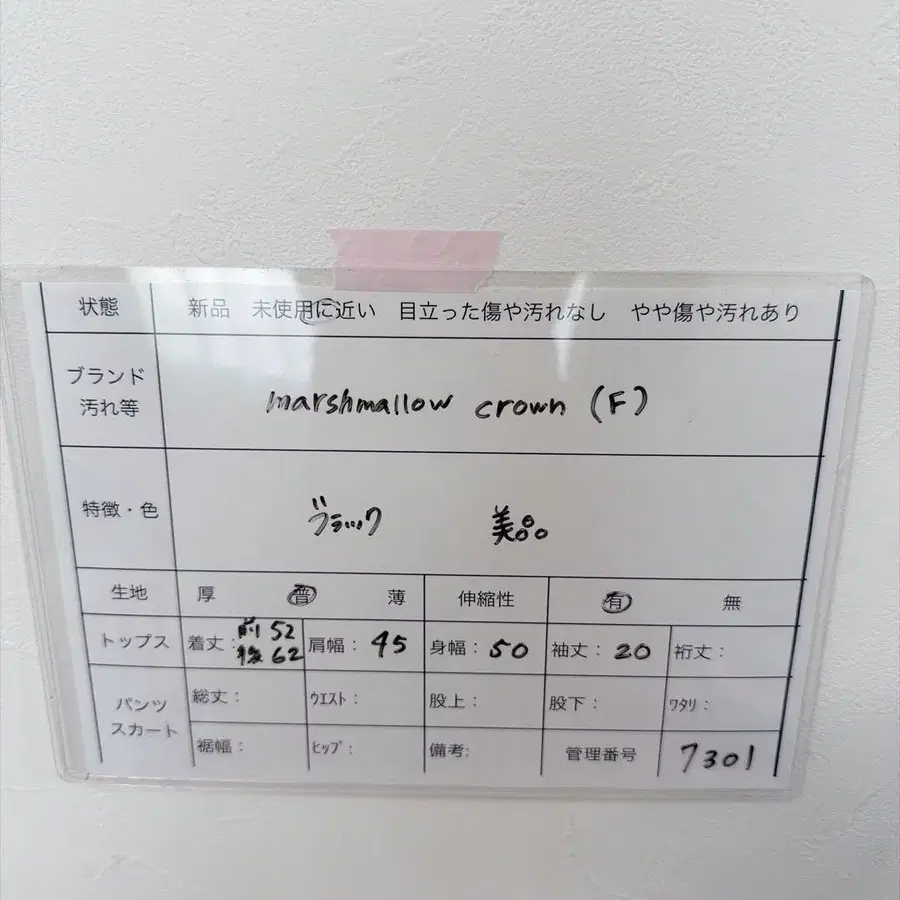 状態 新品 未使用に近い 目立った傷や汚れなし やや傷や汚れあり
ブランド
汚れ等
marshmallow crown (F)
特徴・色 ブラック 美品
生地 厚 普 薄 伸縮性 有 無
トップス 着丈: 前 52 後 62 肩幅: 45 身幅: 50 袖丈: 20 裄丈:
パンツ
スカート
総丈: ウエスト: 股上: 股下: ワタリ:
裾幅: ヒップ: 備考: 管理番号 7301